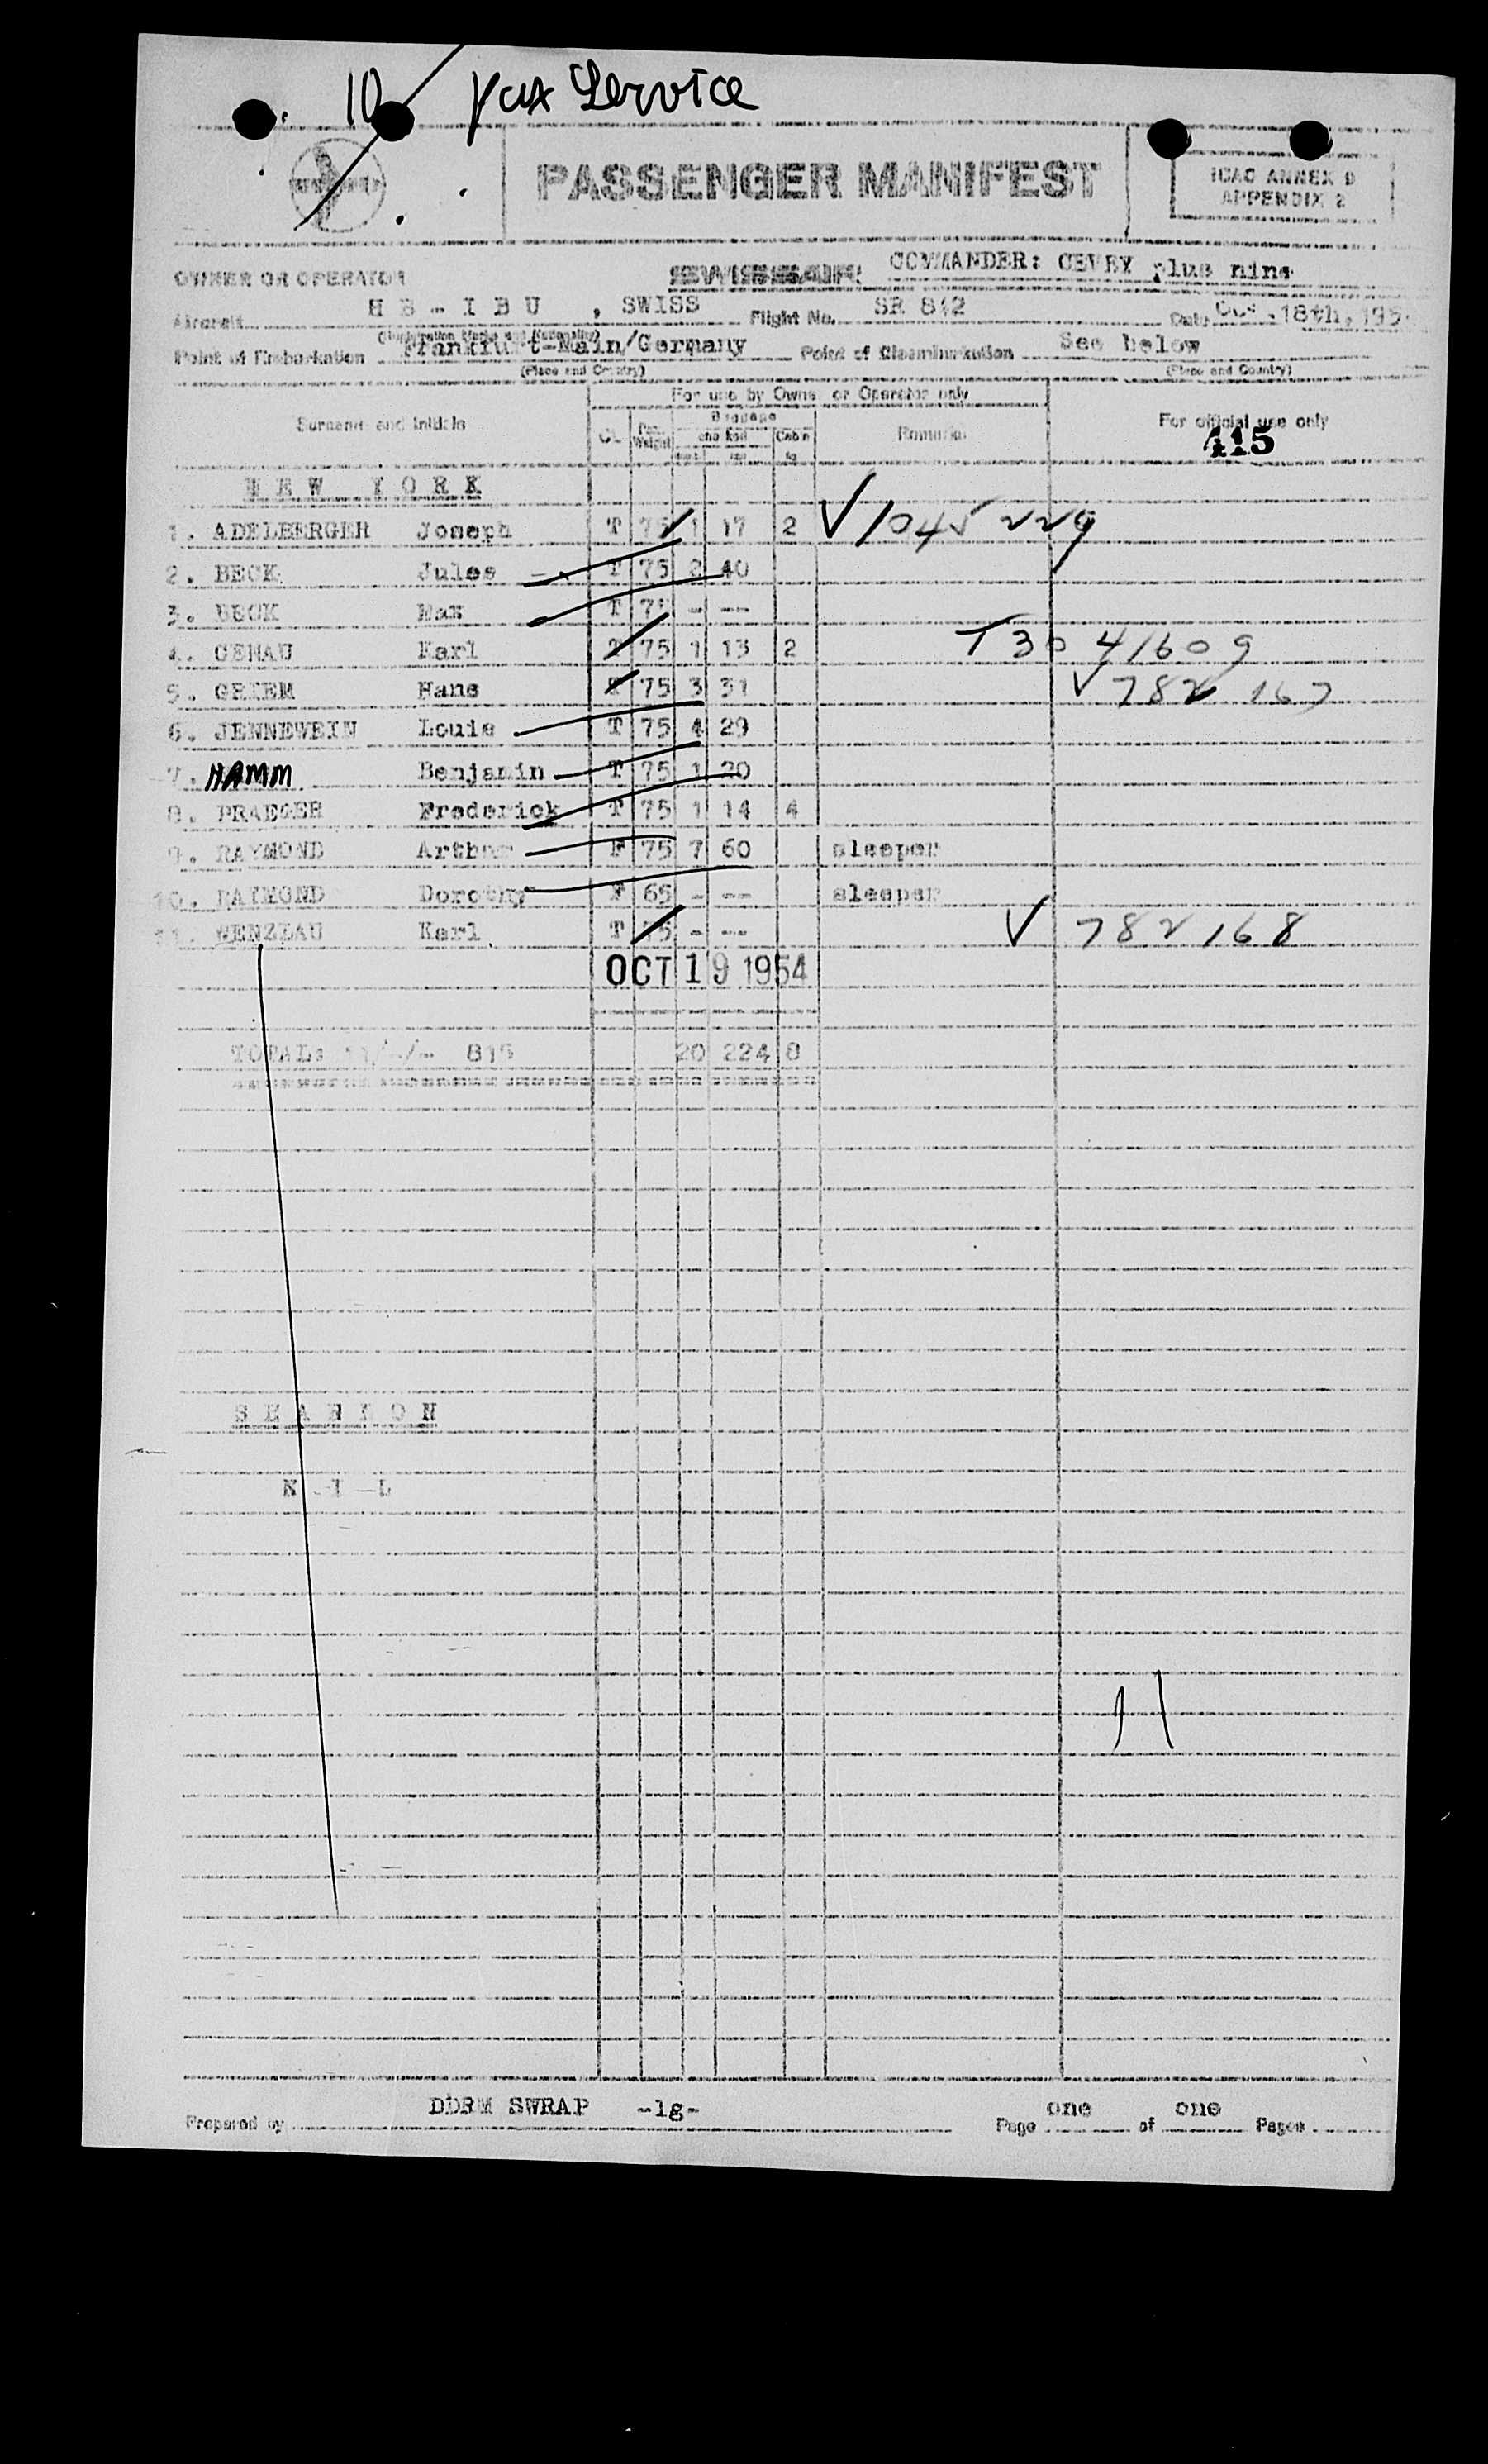 10 Pax Service
PASSENGER MANIFEST
ICAO ANNEX 9
APPENDIX 2
OWNER OR OPERATOR SWISSAIR COMMANDER: plus nine
Aircraft HB-IBU, SWISS Flight No. SR 842 Date Oct.18th, 195
(Registration Marks and Nationality)
Point of Embarkation Frankfurt-Main/Germany Point of Disembarkation See below
(Place and Country) (Place and Country)
For use by Owner or Operator only
Surname and initials Cl. Pas. Weight Baggage checked Cabin kg Remarks For official use only
415
NEW YORK
1. ADELBERGER Joseph T 75 1 17 2 1045229
2. BECK Jules T 75 2 40
3. BECK Max T 75 - --
4. Karl T 75 1 13 2 T3041609
5. GRIEM Hans T 75 3 31 782167
6. JENNEWEIN Louis T 75 4 29
7. HAMM Benjamin T 75 1 20
8. PRAEGER Frederick T 75 1 14 4
9. RAYMOND Arthur F 75 7 60 sleeper
10. RAYMOND Dorothy F 65 - -- sleeper
11. WENZLAU Karl T 75 - -- 782168
OCT 19 1954
TOTAL: 11/-/- 815 20 224 8
SHANNON
N-I-L
11
Prepared by DDRM SWRAP -lg- Page one of one Pages